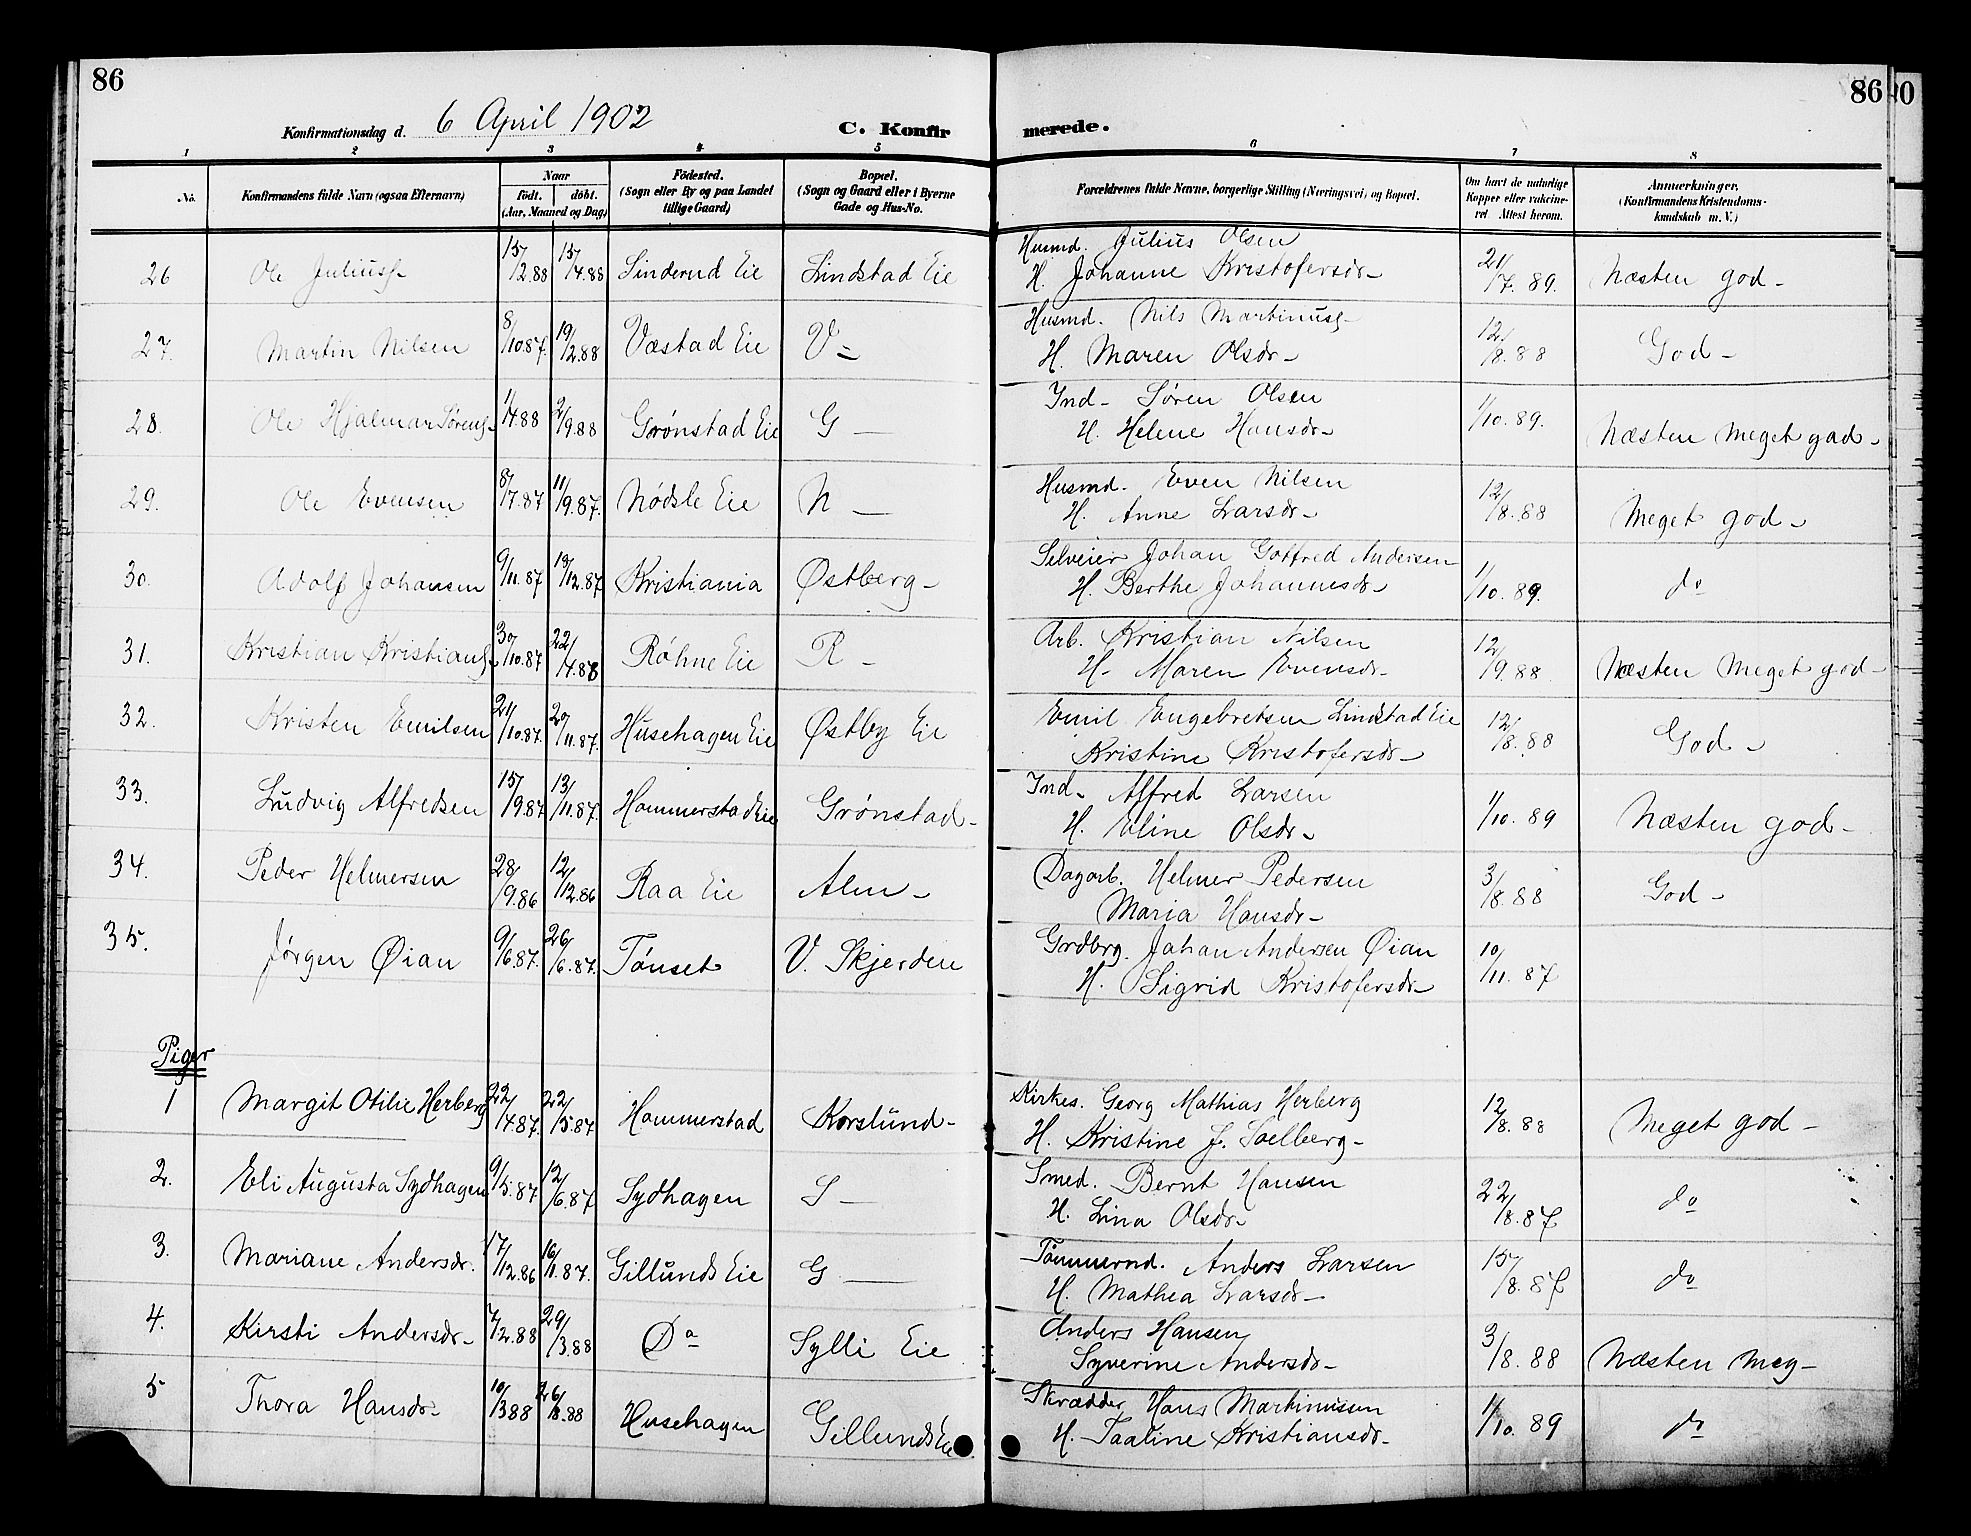 86
86
Konfirmationsdag d. 6 April 1902
C. Konfir
merede.
1 2 3 4 5 6 7 8
No. Konfirmandens fulde Navn (ogsaa Efternavn) Naar födt. döbt. (Aar, Maaned og Dag) Födested. (Sogn eller By og paa Landet tillige Gaard) Bopæl. (Sogn og Gaard eller i Byerne Gade og Hus-No. Forældrenes fulde Navne, borgerlige Stilling (Næringsvei) og Bopæl. Om havt de naturlige Kopper eller vakcineret Attest herom. Anmærkninger. (Konfirmandens Kristendomskundskab m. V.)
26 Ole Juliuss- 15/12.88 15/4.88 Linderud Eie Lindstad Eie Husmd. Julius Olsen 21/7.89. Næsten god-
H. Johanne Kristofersdr-
27. Martin Nilsen 8/10.87. 19/2.88 Væstad Eie V- Husmd. Nils Martinuss- 12/8.88 God-
H. Maren Olsdr-
28. Ole Hjalmar Sörens- 1/4.88 2/9.88 Grønstad Eie G- Ind- Søren Olsen 1/10.89. Næsten meget god-
H. Helene Hansdr-
29. Ole Evensen 8/7.87 11/9.87. Nödsle Eie N- Husmd. Even Nilsen 12/8.88 Meget god-
H. Anne Larsdr-
30. Adolf Johansen 9/11.87 /12.87 Kristiania Østberg- Selveier Johan Gotfred Andersen 1/10.89. do
H. Berthe Johannesdr-
31. Kristian Kristians- 30/10.87 22/4.88 Röhne Eie R- Arb. Kristian Nilsen 12/9.88 Næsten meget god-
H. Maren Evensdr-
32. Kristen Emilsen 21/10.87. 20/11.87. Husehagen Eie Østby Eie Emil Engebretsen Lindstad Eie 12/8.88 God-
Kristine Kristofersdr-
33. Ludvig Alfredsen 15/9.87 13/11.87. Hammerstad Eie Grønstad- Ind- Alfred Larsen 1/10.89 Næsten god-
H. Eline Olsdr-
34. Peder Helmersen 28/9.86 12/12.86 Raa Eie Alm- Dagarb. Helmer Pedersen 3/8.88 God-
Maria Hansdr-
35. Jørgen Øian 9/6.87. 26/6.87. Tönset V. Skjerden Grdbrg. Johan Andersen Øian 10/11.87
H. Sigrid Kristofersdr-
Piger
1 Margit Otilie Herberg 22/4.87. 22/5.87 Hammerstad Korslund- Kirkes. Georg Mathias Herberg 12/8.88 Meget god-
H. Kristine J. Solberg-
2. Eli Augusta Sydhagen 9/5.87 12/6.87 Sydhagen S- Smed. Bernt Hansen 22/8.87 do
H. Lina Olsdr-
3. Mariane Andersdr. 17/12.86 16/1.87. Gillunds Eie G- Tömmermd. Anders Larsen 15/8.87 do
H. Mathea Larsdr-
4. Kirsti Andersdr- 7/2.88 29/3.88 Do Sylli Eie Anders Hansen 3/8.88 Næsten meg-
Syverine Andersdr-
5 Thora Hansdr- 10/3.88 26/8.88 Husehagen Gillunds Eie Skrædder Hans Martinussen 1/10.89 do
H. Taaline Kristiansdr-